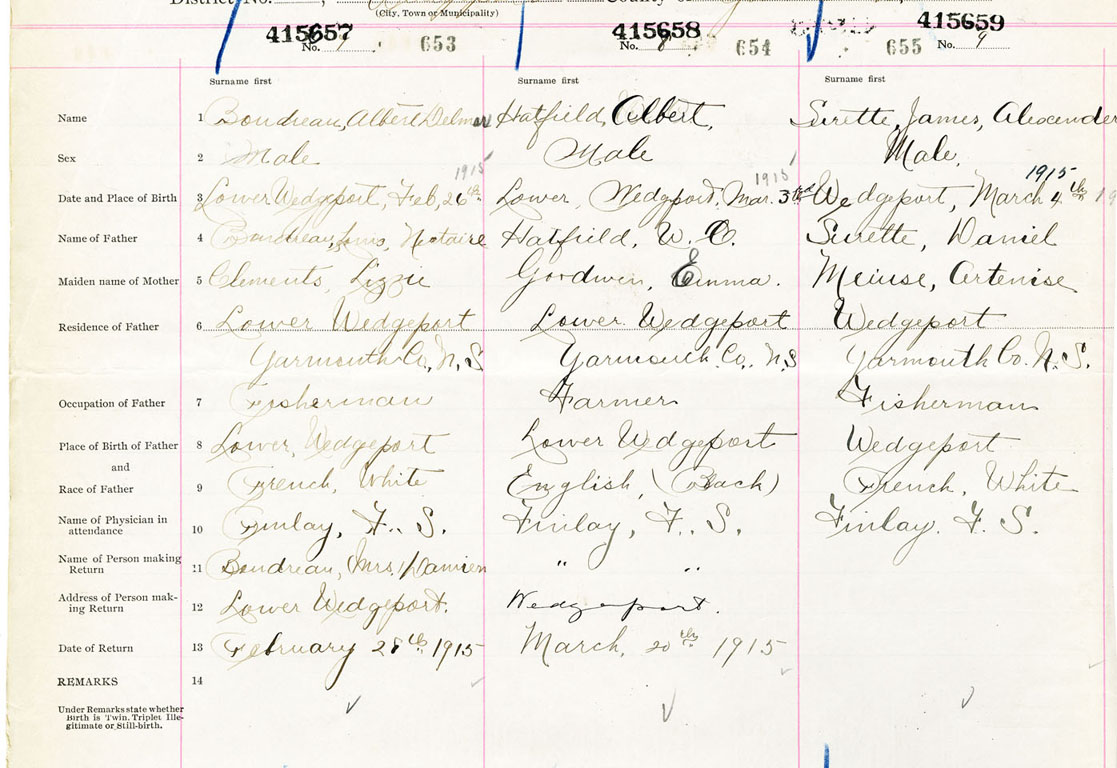 District No. , County of
(City, Town or Municipality)
415657 415658 415659
No. 7 653 No. 8 654 655 No. 9
Surname first Surname first Surname first
Name 1 Boudreau, Albert Delmar Hatfield, Albert, Surette, James, Alexender
Sex 2 Male Male Male.
1915 1915 1915
Date and Place of Birth 3 Lower Wedgeport, Feb, 26th Lower, Wedgeport, Mar. 3rd Wedgeport, March 4th 19
Name of Father 4 Boudreau, Hatfield, W. C. Surette, Daniel
Maiden name of Mother 5 Clements, Lizzie Goodwin, Emma. Meiuse, Artenise
Residence of Father 6 Lower Wedgeport Lower Wedgeport Wedgeport
Yarmouth Co., N. S Yarmouth Co., N. S Yarmouth Co. N. S.
Occupation of Father 7 Fisherman Farmer Fisherman
Place of Birth of Father 8 Lower, Wedgeport Lower Wedgeport Wedgeport
and
Race of Father 9 French, White English, (Black) French, White
Name of Physician in
attendance 10 Finlay, F. S. Finlay, F. S. Finlay. F. S.
Name of Person making
Return 11 Boudreau, Mrs. Damien " "
Address of Person mak-
ing Return 12 Lower Wedgeport. Wedgeport.
Date of Return 13 February 28th 1915 March, 20th 1915
REMARKS 14
Under Remarks state whether
Birth is Twin, Triplet Ille-
gitimate or Still-birth.